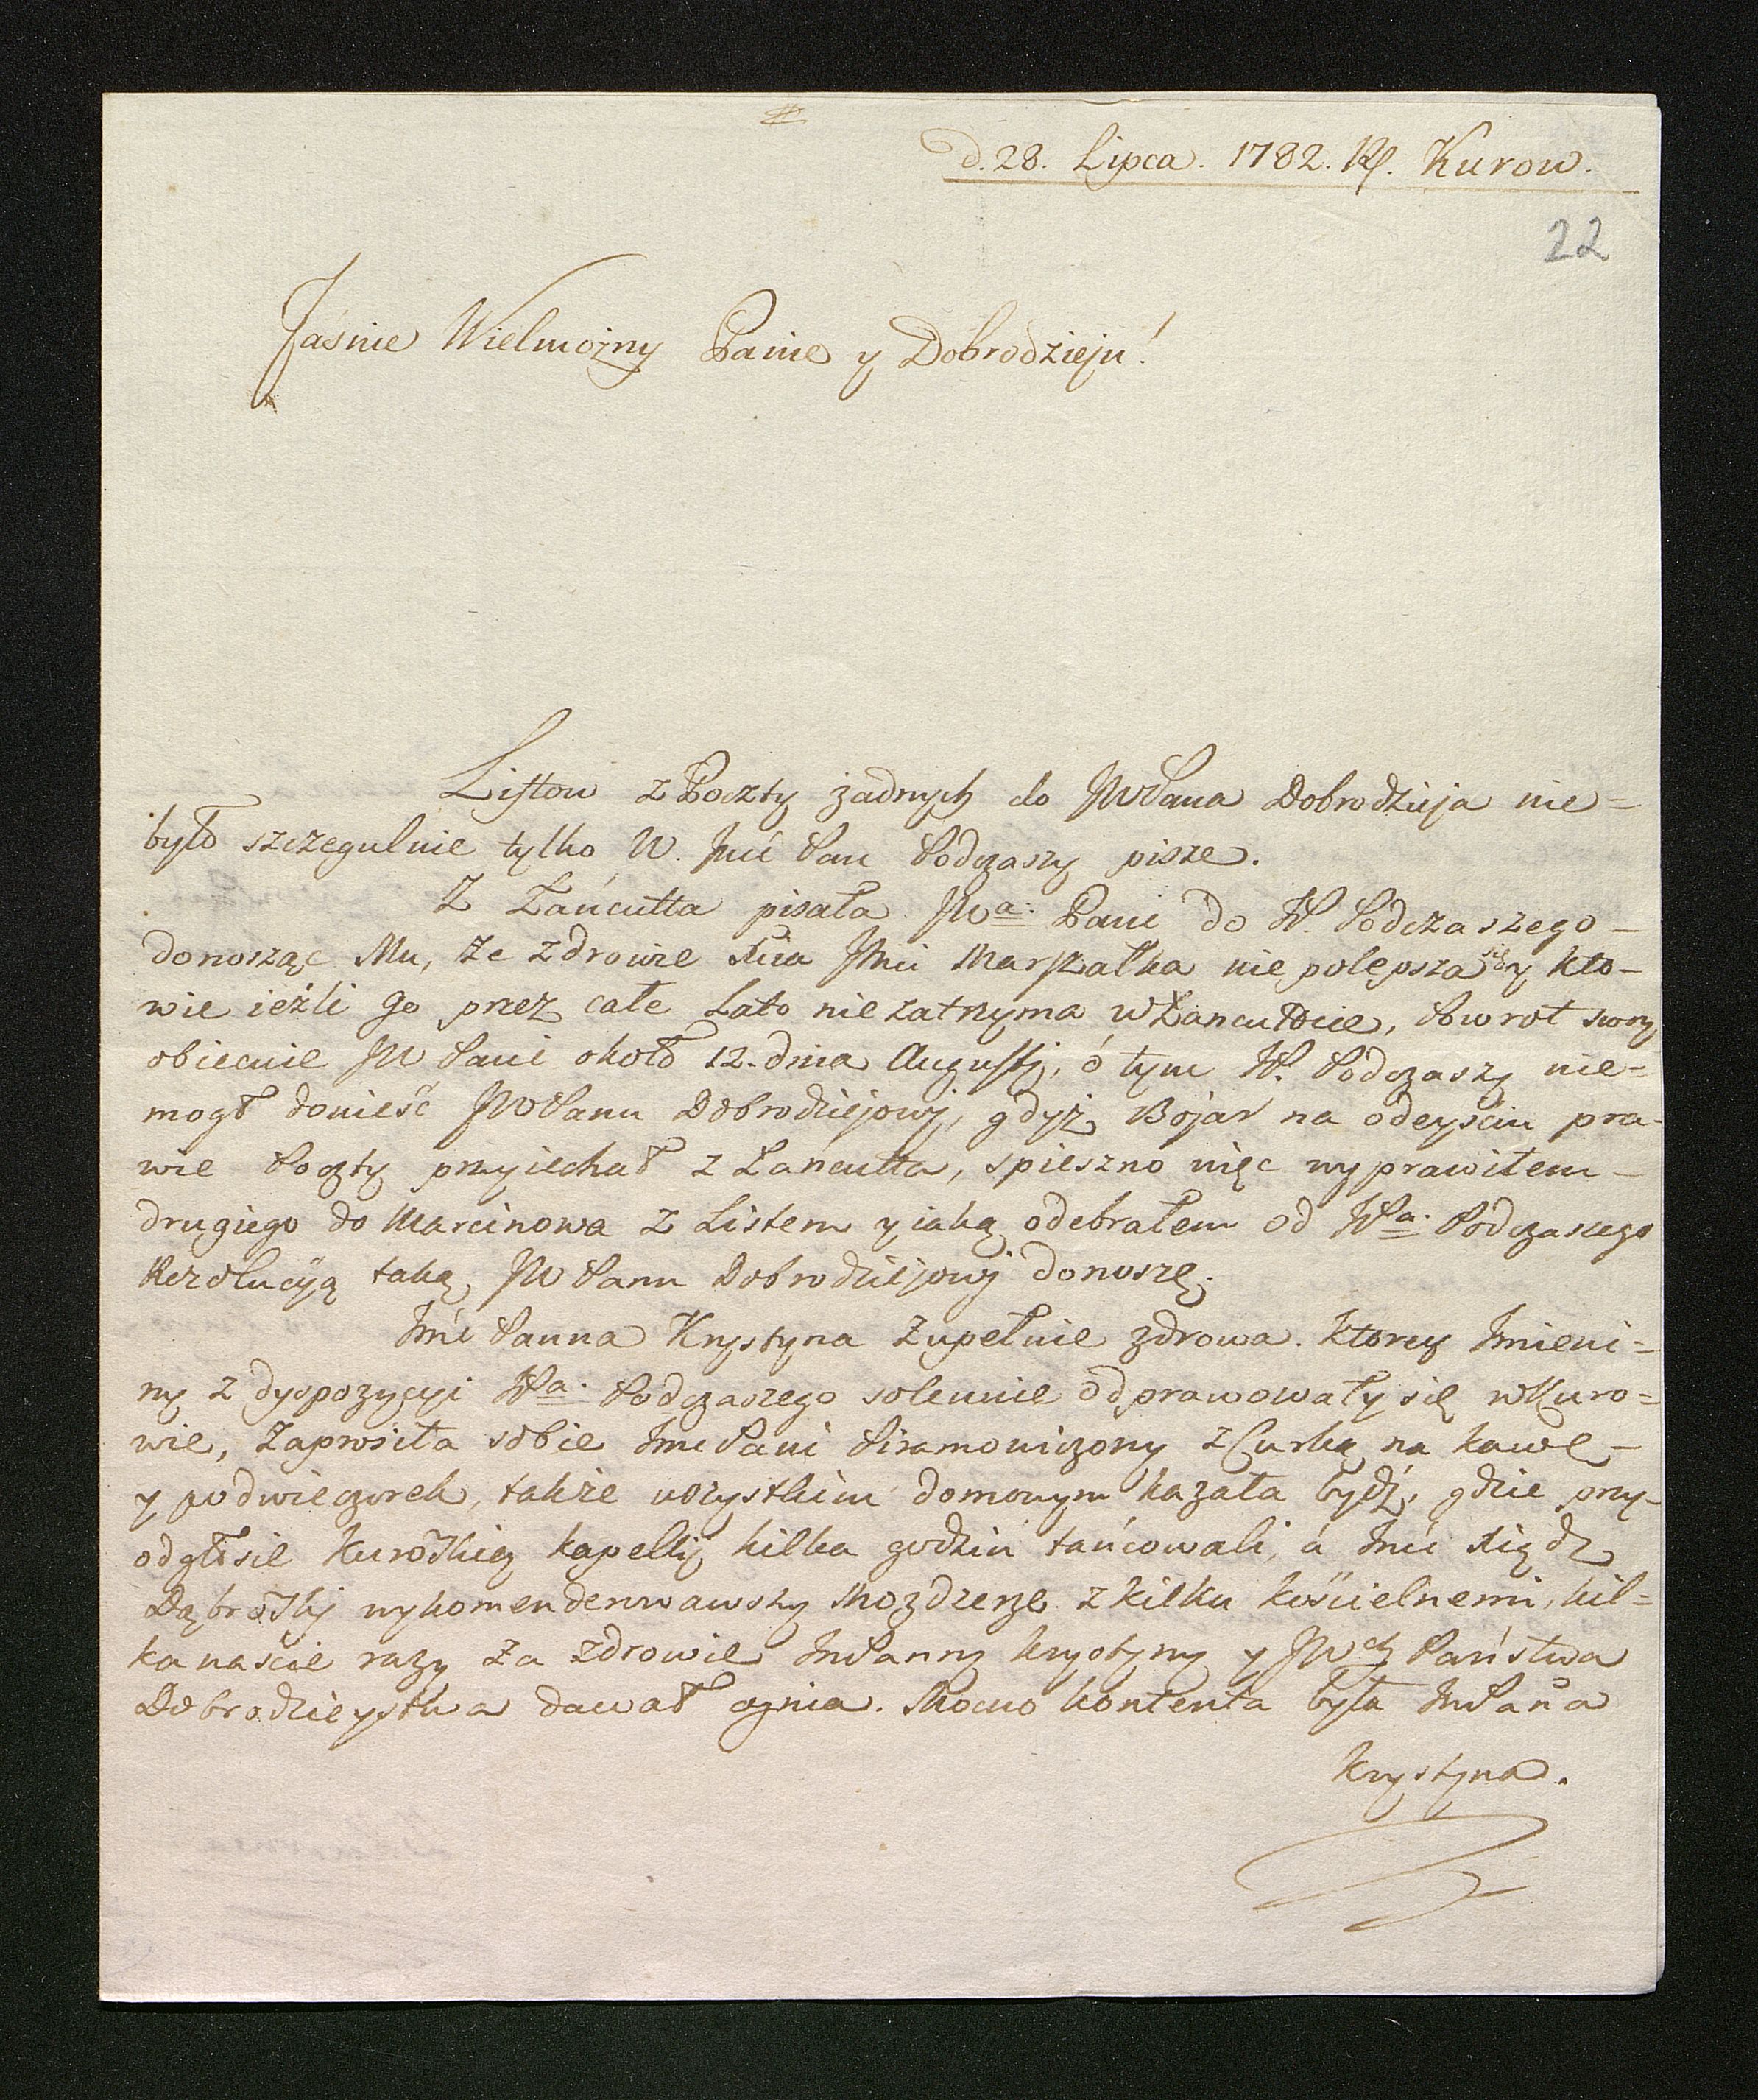 #
d. 28. Lipca. 1782. R. Kurow.
22
Jaśnie Wielmożny Panie y Dobrodzieju!
Listow z Poczty żadnych do JWPana Dobrodzieja nie=
było szczegulnie tylko W. Jmć Pan Podczaszy pisze.
Z Łańcutta pisała JWa. Pani do W. Podczaszego –
donosząc Mu, że zdrowie Xcia Jmci Marszałka nie polepsza się y kto–
wie ieżli go przez całe Lato nie zatrzyma w Łancutcie, Powrot swoy
obiecuie JW Pani około 12. dnia Augusti, ó tym W. Podczaszy nie–
mogł donieść JWPanu Dobrodziejowj, gdyż Bojar na odeyściu pra–
wie Poczty przyiechał z Łancutta, spieszno więc wyprawiłem –
drugiego do Marcinowa z Listem y iaką odebrałem od Wa. Podczaszego
Rezolucyą taką JW Panu Dobrodziejowj donoszę.
Jmć Panna Krystyna zupełnie zdrowa. ktorey Jmieni=
ny z dyspozycyi Wa. Podczaszego solennie odprawowały się w Kuro=
wie, Zaprosiła sobie Jmć Pani Piramowiczony z Curką na kawę –
y podwieczorek, także wszystkim domowym kazała bydź, gdzie przy–
odgłosie Kurowskiey kapelli kilka godzin tańcowali, á Jmć Xiądz
Dąbrowskj wykomenderowawszy Mozdzerze z kilku kościelnemi, kil=
kanaście razy za zdrowie JmPanny Krystyny y JWch Państwa
Dobrodzieystwa dawał ognia. Mocno kontenta była JmPaña
Krystyna.